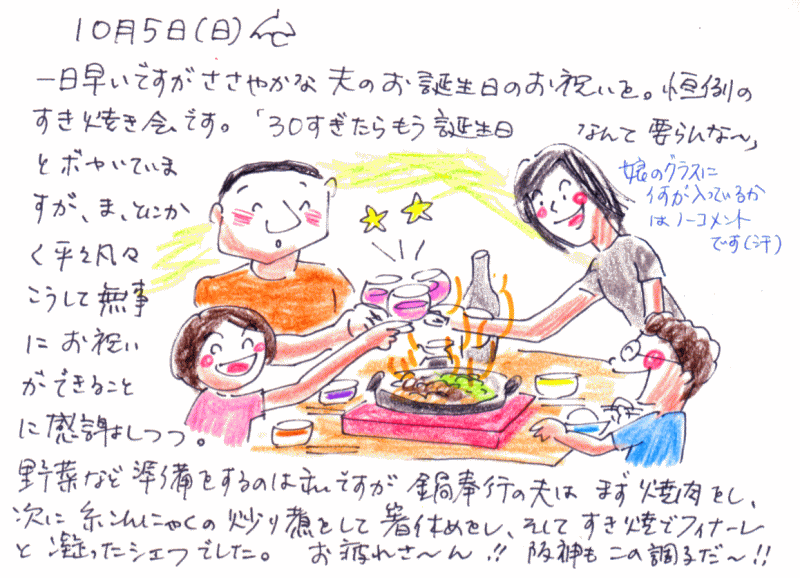 10月5日(日)
一日早いですがささやかな 夫のお誕生日のお祝いを。恒例の
すき焼き会です。「30すぎたらもう誕生日 なんて要らんな〜」
とボヤいていま
すが、ま、とにか
く平々凡々
こうして無事
にお祝い
ができること
に感謝しつつ。
娘のグラスに
何が入っているか
はノーコメント
です(汗)
野菜など準備をするのは私ですが 鍋奉行の夫は まず焼肉をし、
次に糸こんにゃくの炒り煮をして箸休めをし、そしてすき焼でフィナーレ
と凝ったシェフでした。 お疲れさ〜ん!! 阪神もこの調子だ〜!!